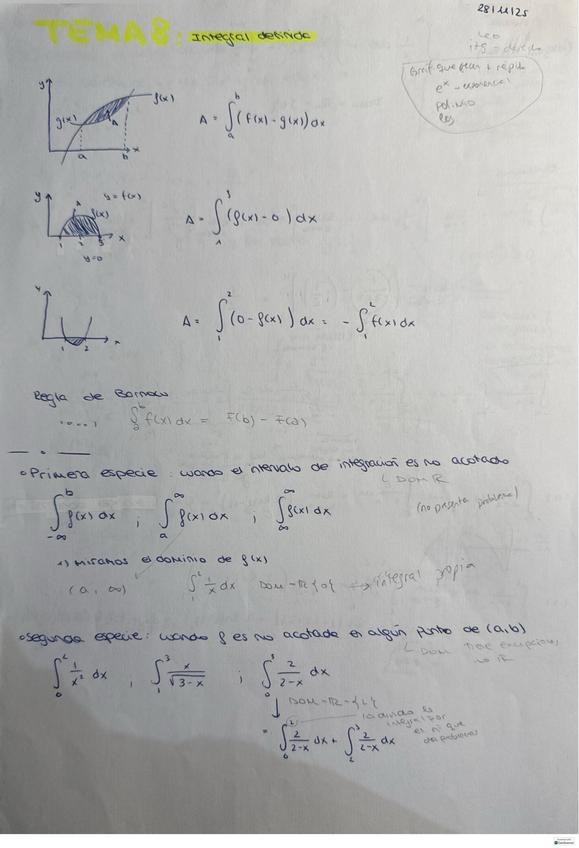 28/11/25
TEMA 8: Integral definida
Leo
e^x → exponencial
y
f(x)
g(x)
A
a b x
A = ∫_a^b (f(x) - g(x)) dx
y y = f(x)
A f(x)
1 2 3 x
y=0
A = ∫_1^3 (f(x) - 0) dx
y
1 2 x
A = ∫_1^2 (0 - f(x)) dx = - ∫_1^2 f(x) dx
Regla de Barrow
∫_a^b f(x) dx = F(b) - F(a)
• Primera especie: cuando el intervalo de integración es no acotado
↳ DOM R
(no presenta problema)
∫_{-∞}^b f(x) dx ; ∫_a^∞ f(x) dx ; ∫_∞^∞ f(x) dx
1) miramos el dominio de f(x)
(a, ∞) ∫_1^2 1/x dx DOM = R - {0} → integral propia
• Segunda especie: cuando f es no acotada en algún punto de (a,b)
↳ DOM tiene excepciones, no R
∫_0^2 1/x² dx , ∫_1^3 x/√(3-x) ; ∫_0^3 2/(2-x) dx
↓ DOM = R - {2}
la divido la integral por el nº que da problemas
= ∫_0^2 2/(2-x) dx + ∫_2^3 2/(2-x) dx